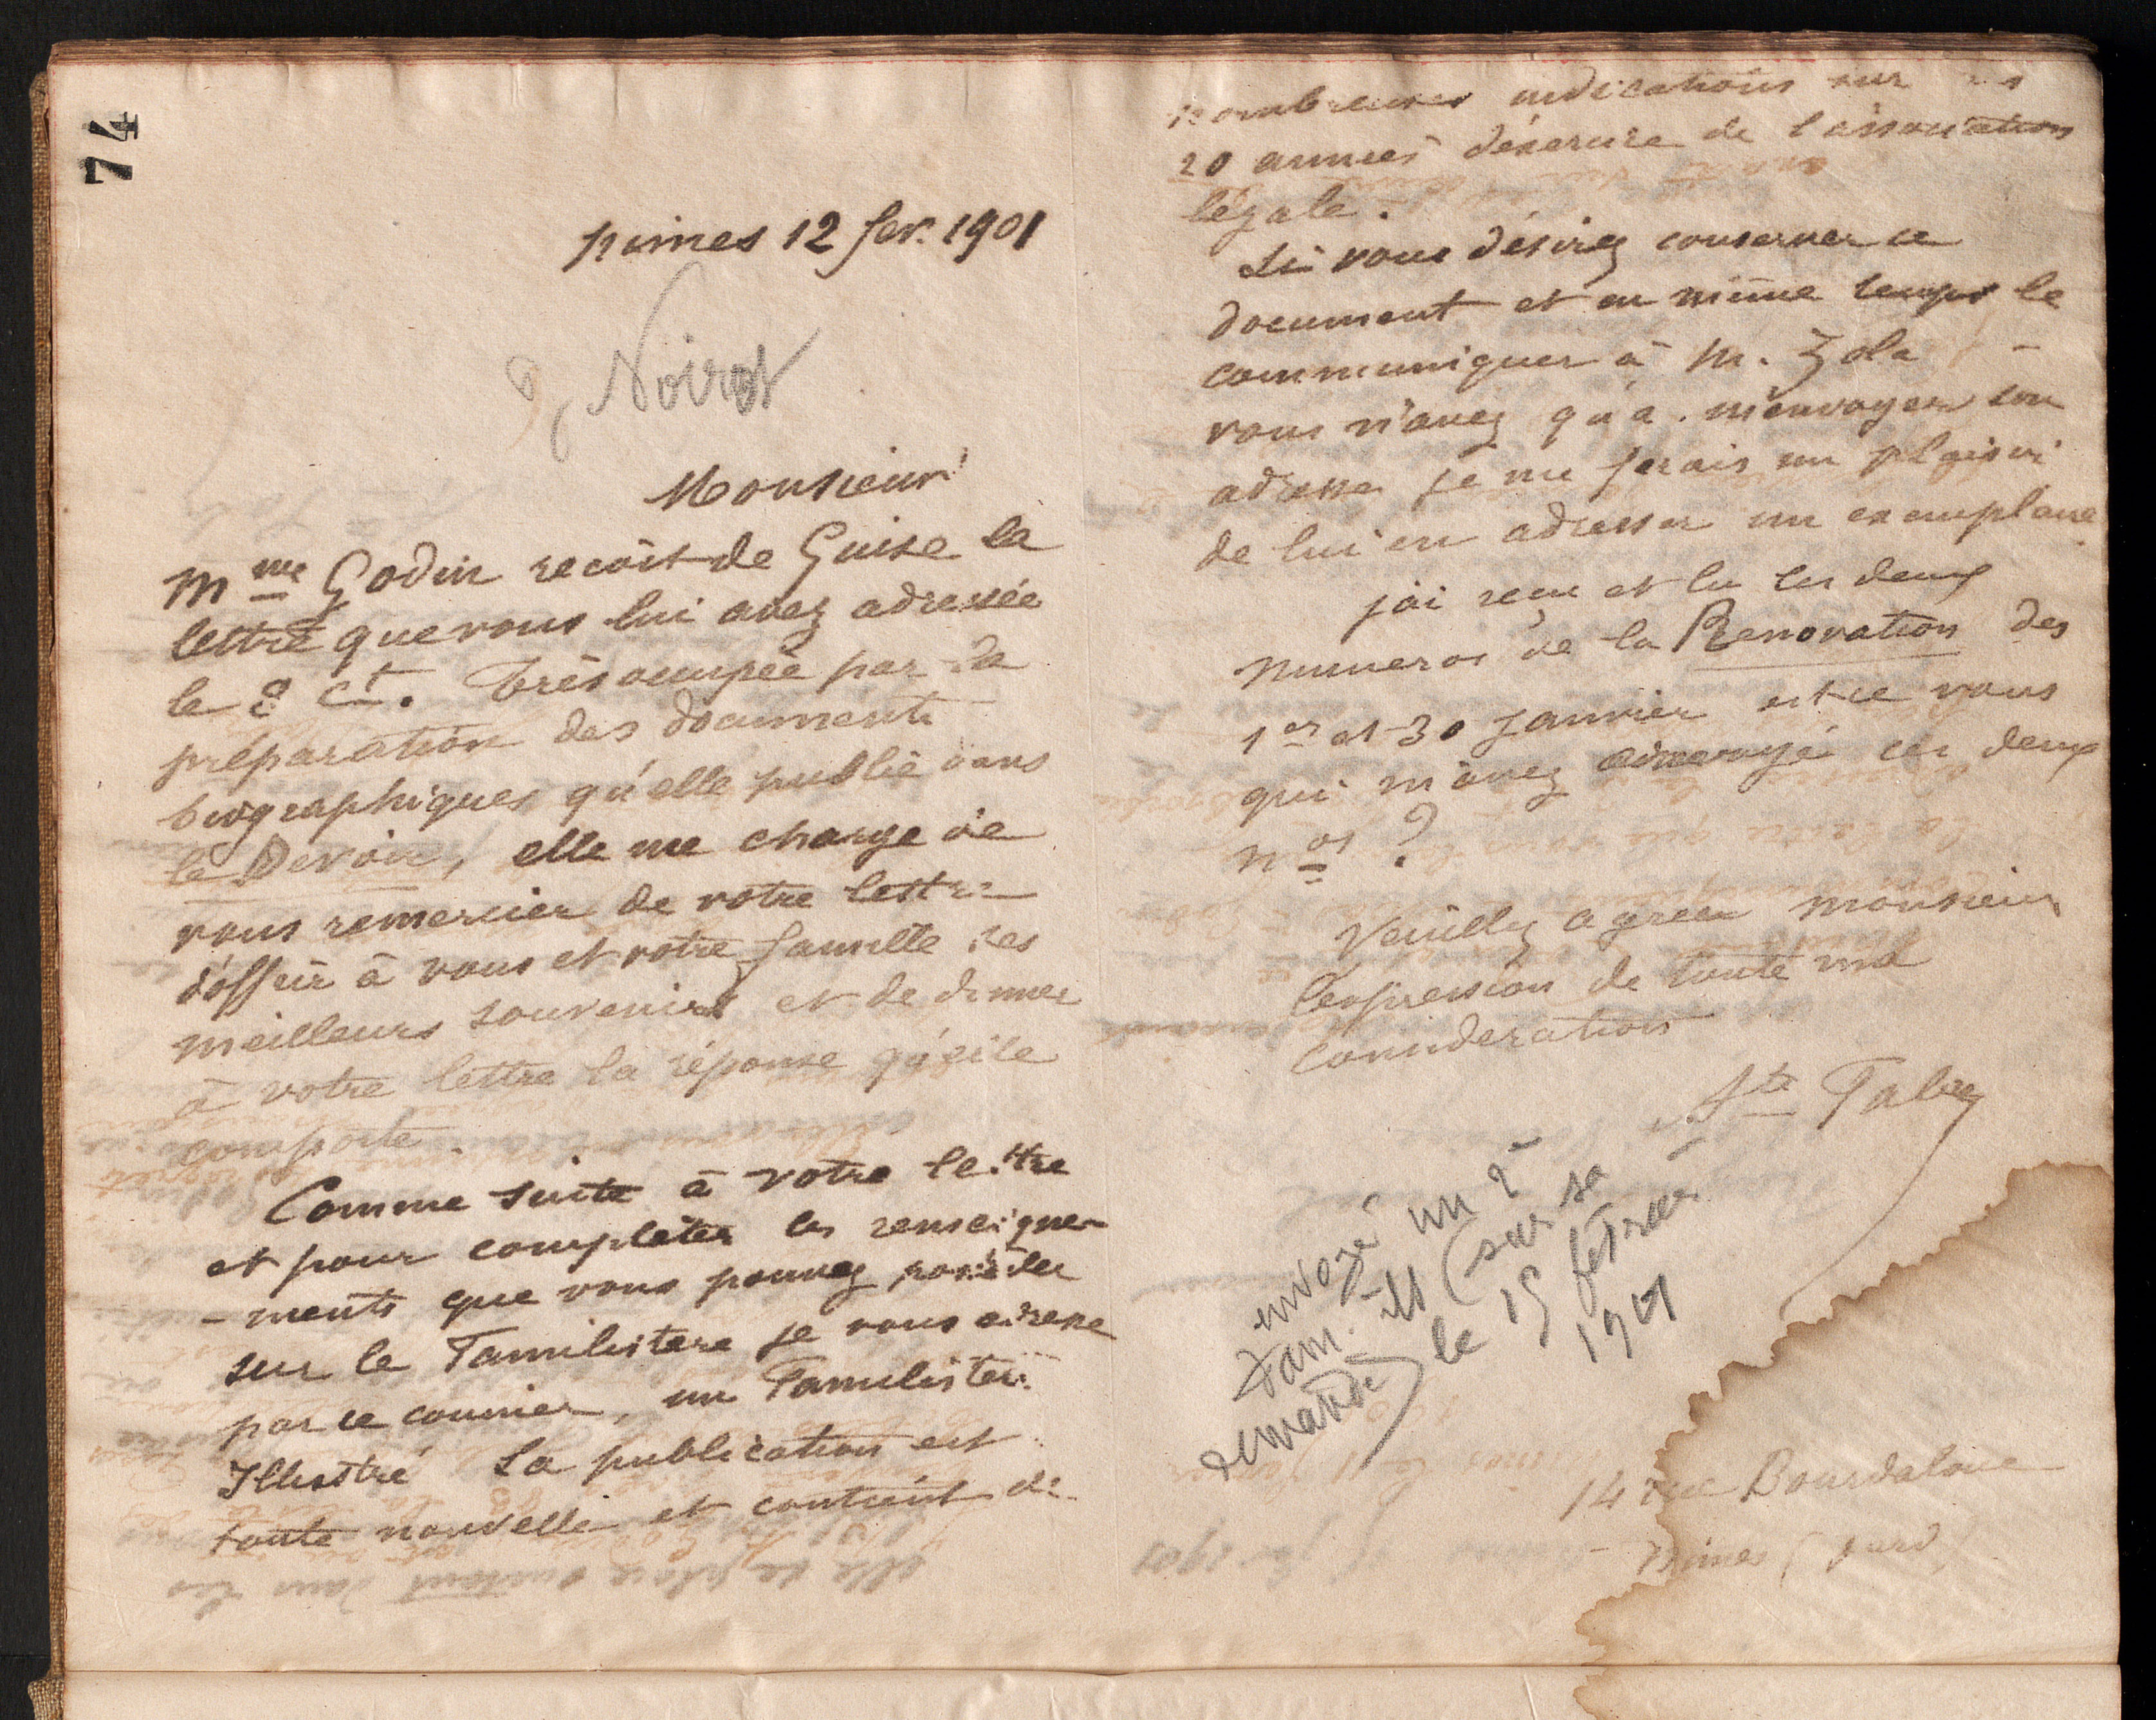 74
Nimes 12 fev. 1901
Noirot
Monsieur
Mme Godin recoit de Guise la
lettre que vous lui avez adressée
le 8 Ct. très occupée par la
préparation des documents
biographiques qu'elle publie dans
le Devoir, elle me charge de
vous remercier de votre lettre
d'offrir à vous et votre famille ses
meilleurs souvenirs et de donner
à votre lettre la réponse qu'elle
comporte
Comme suite à votre lettre
et pour compléter les renseigne-
-ments que vous pouvez posséder
sur le Familistere je vous adresse
par ce courrier, un Familistère
Illustré La publication est
toute nouvelle et contient de
nombreuses indications sur les
20 années d'exercice de l'association
légale.
Si vous désirez conserver ce
document et en même temps le
communiquer à M. Zola
vous n'avez qu'à m'envoyer son
adresse je me ferais un plaisir
de lui en adresser un exemplaire
j'ai reçu et lu les deux
numeros de la Renovation des
1er et 30 Janvier est ce vous
qui m'avez envoyé ces deux
nos ?
Veuillez agréer monsieur
l'expression de toute ma
consideration
Ate Fabre
envoyé un 2e
Fam. ill (sur sa
demande) le 15 février
1901
14 rue Bourdaloue
Nimes (Gard)